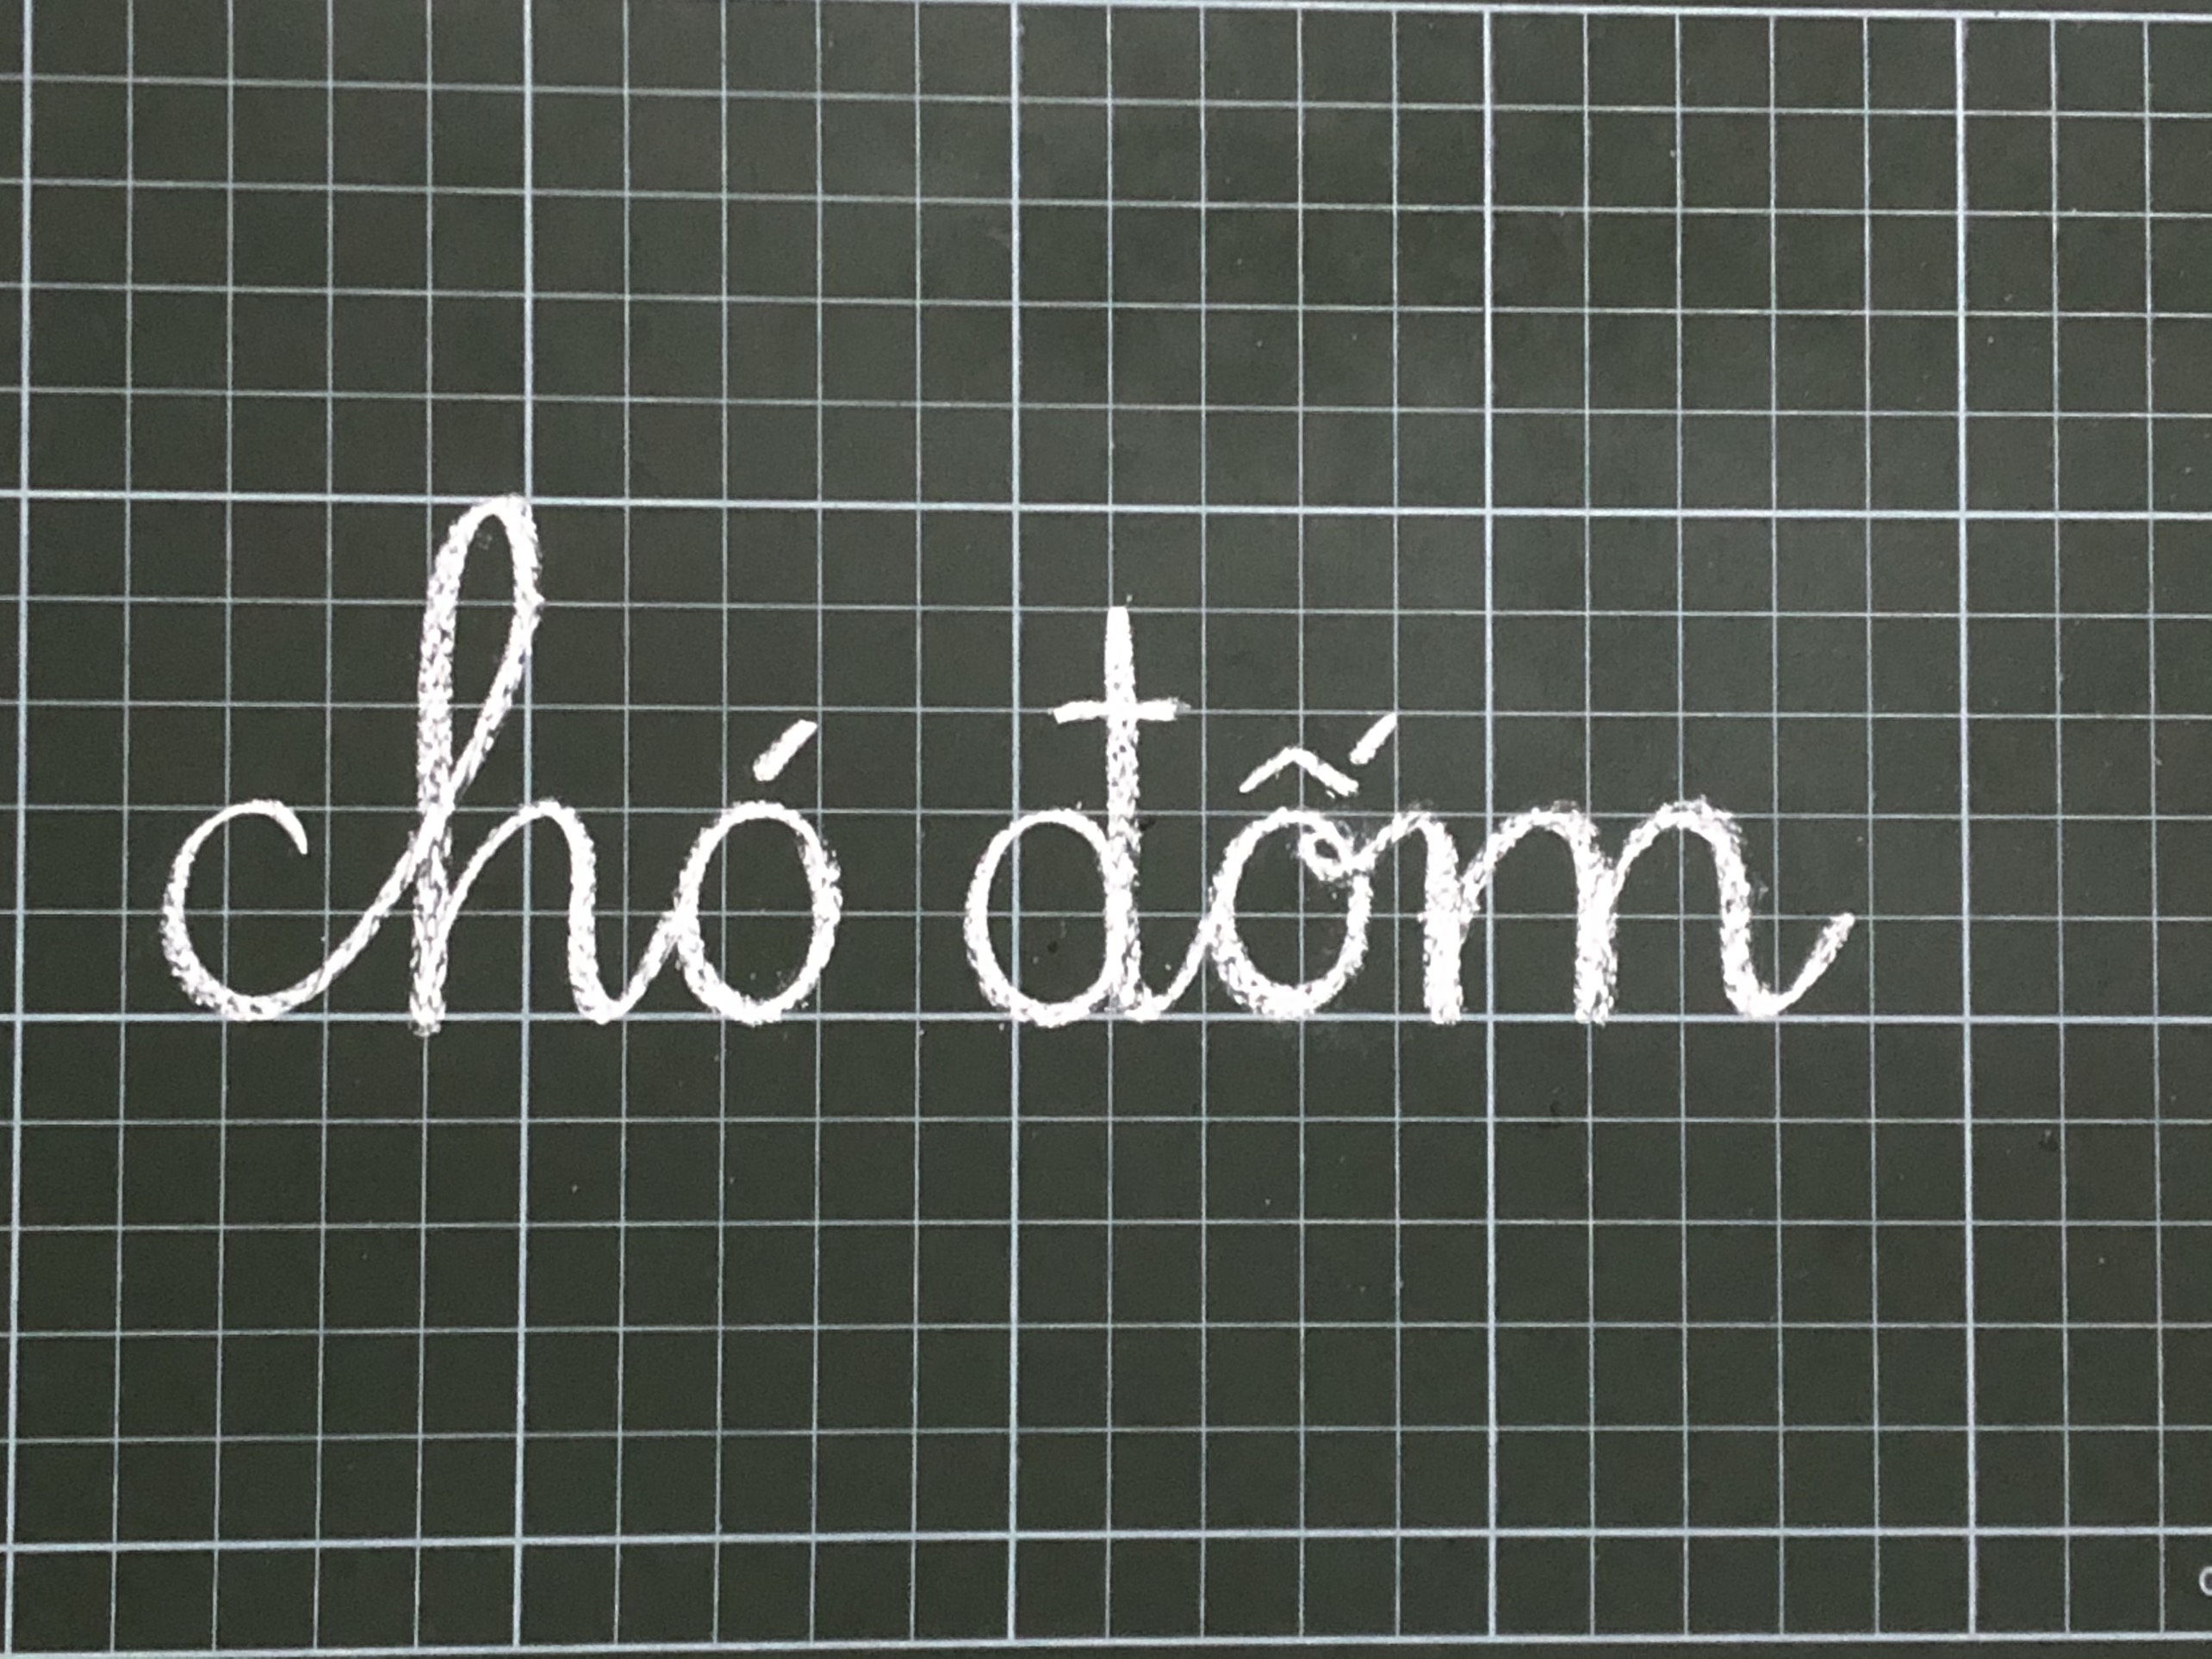 chó đốm